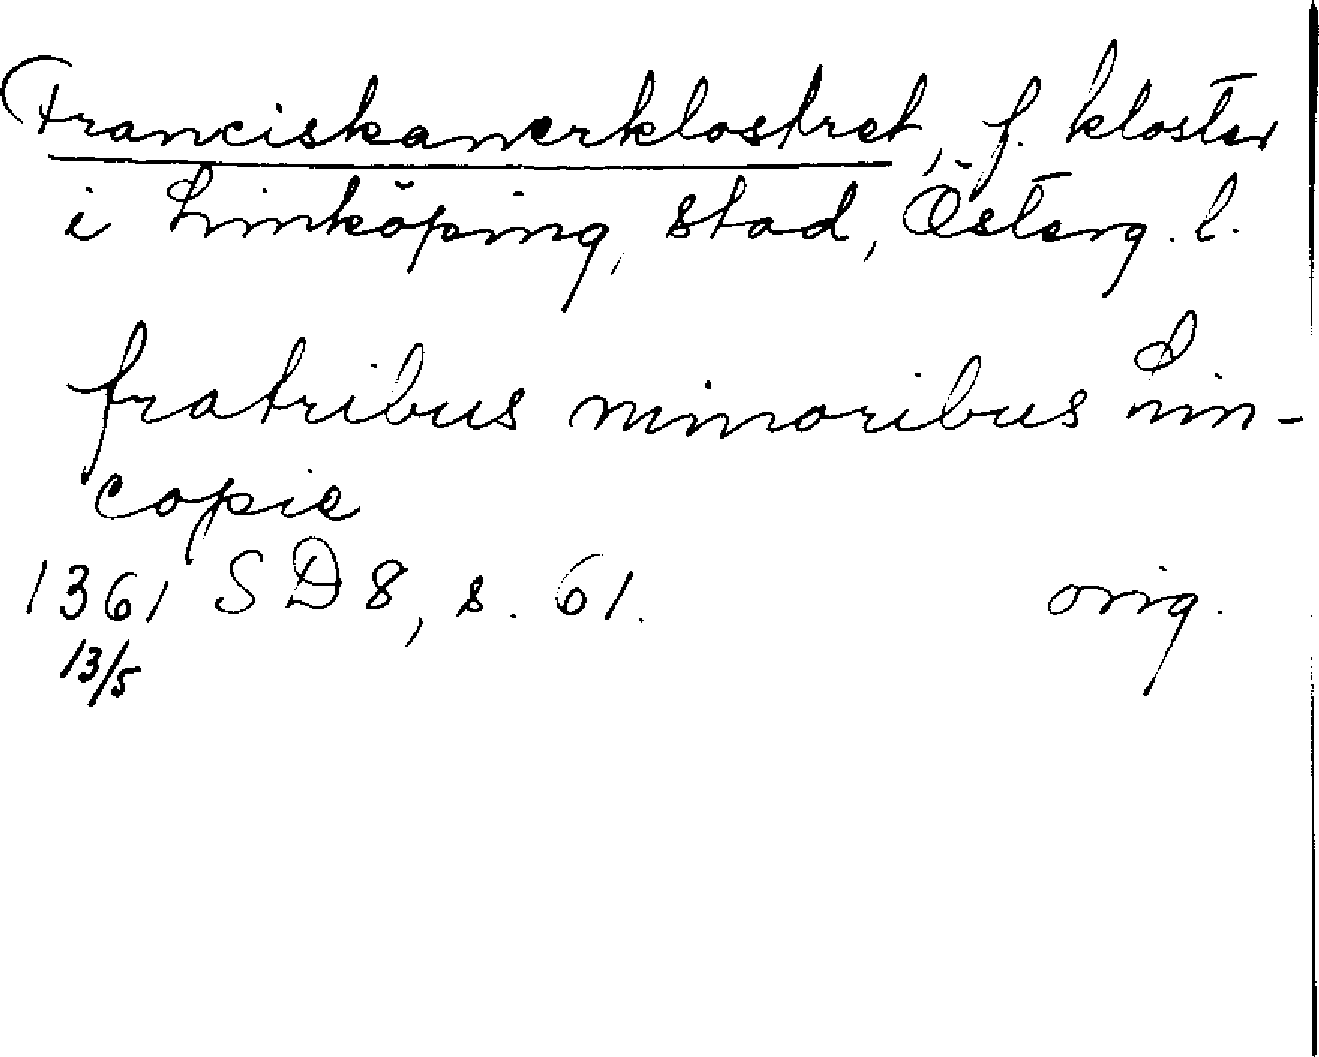 Franciskanerklostret, f. kloster
i Linköping, stad, Österg. l.
fratribus minoribus Lin-
copie
1361 SD 8, s. 61. orig.
13/5